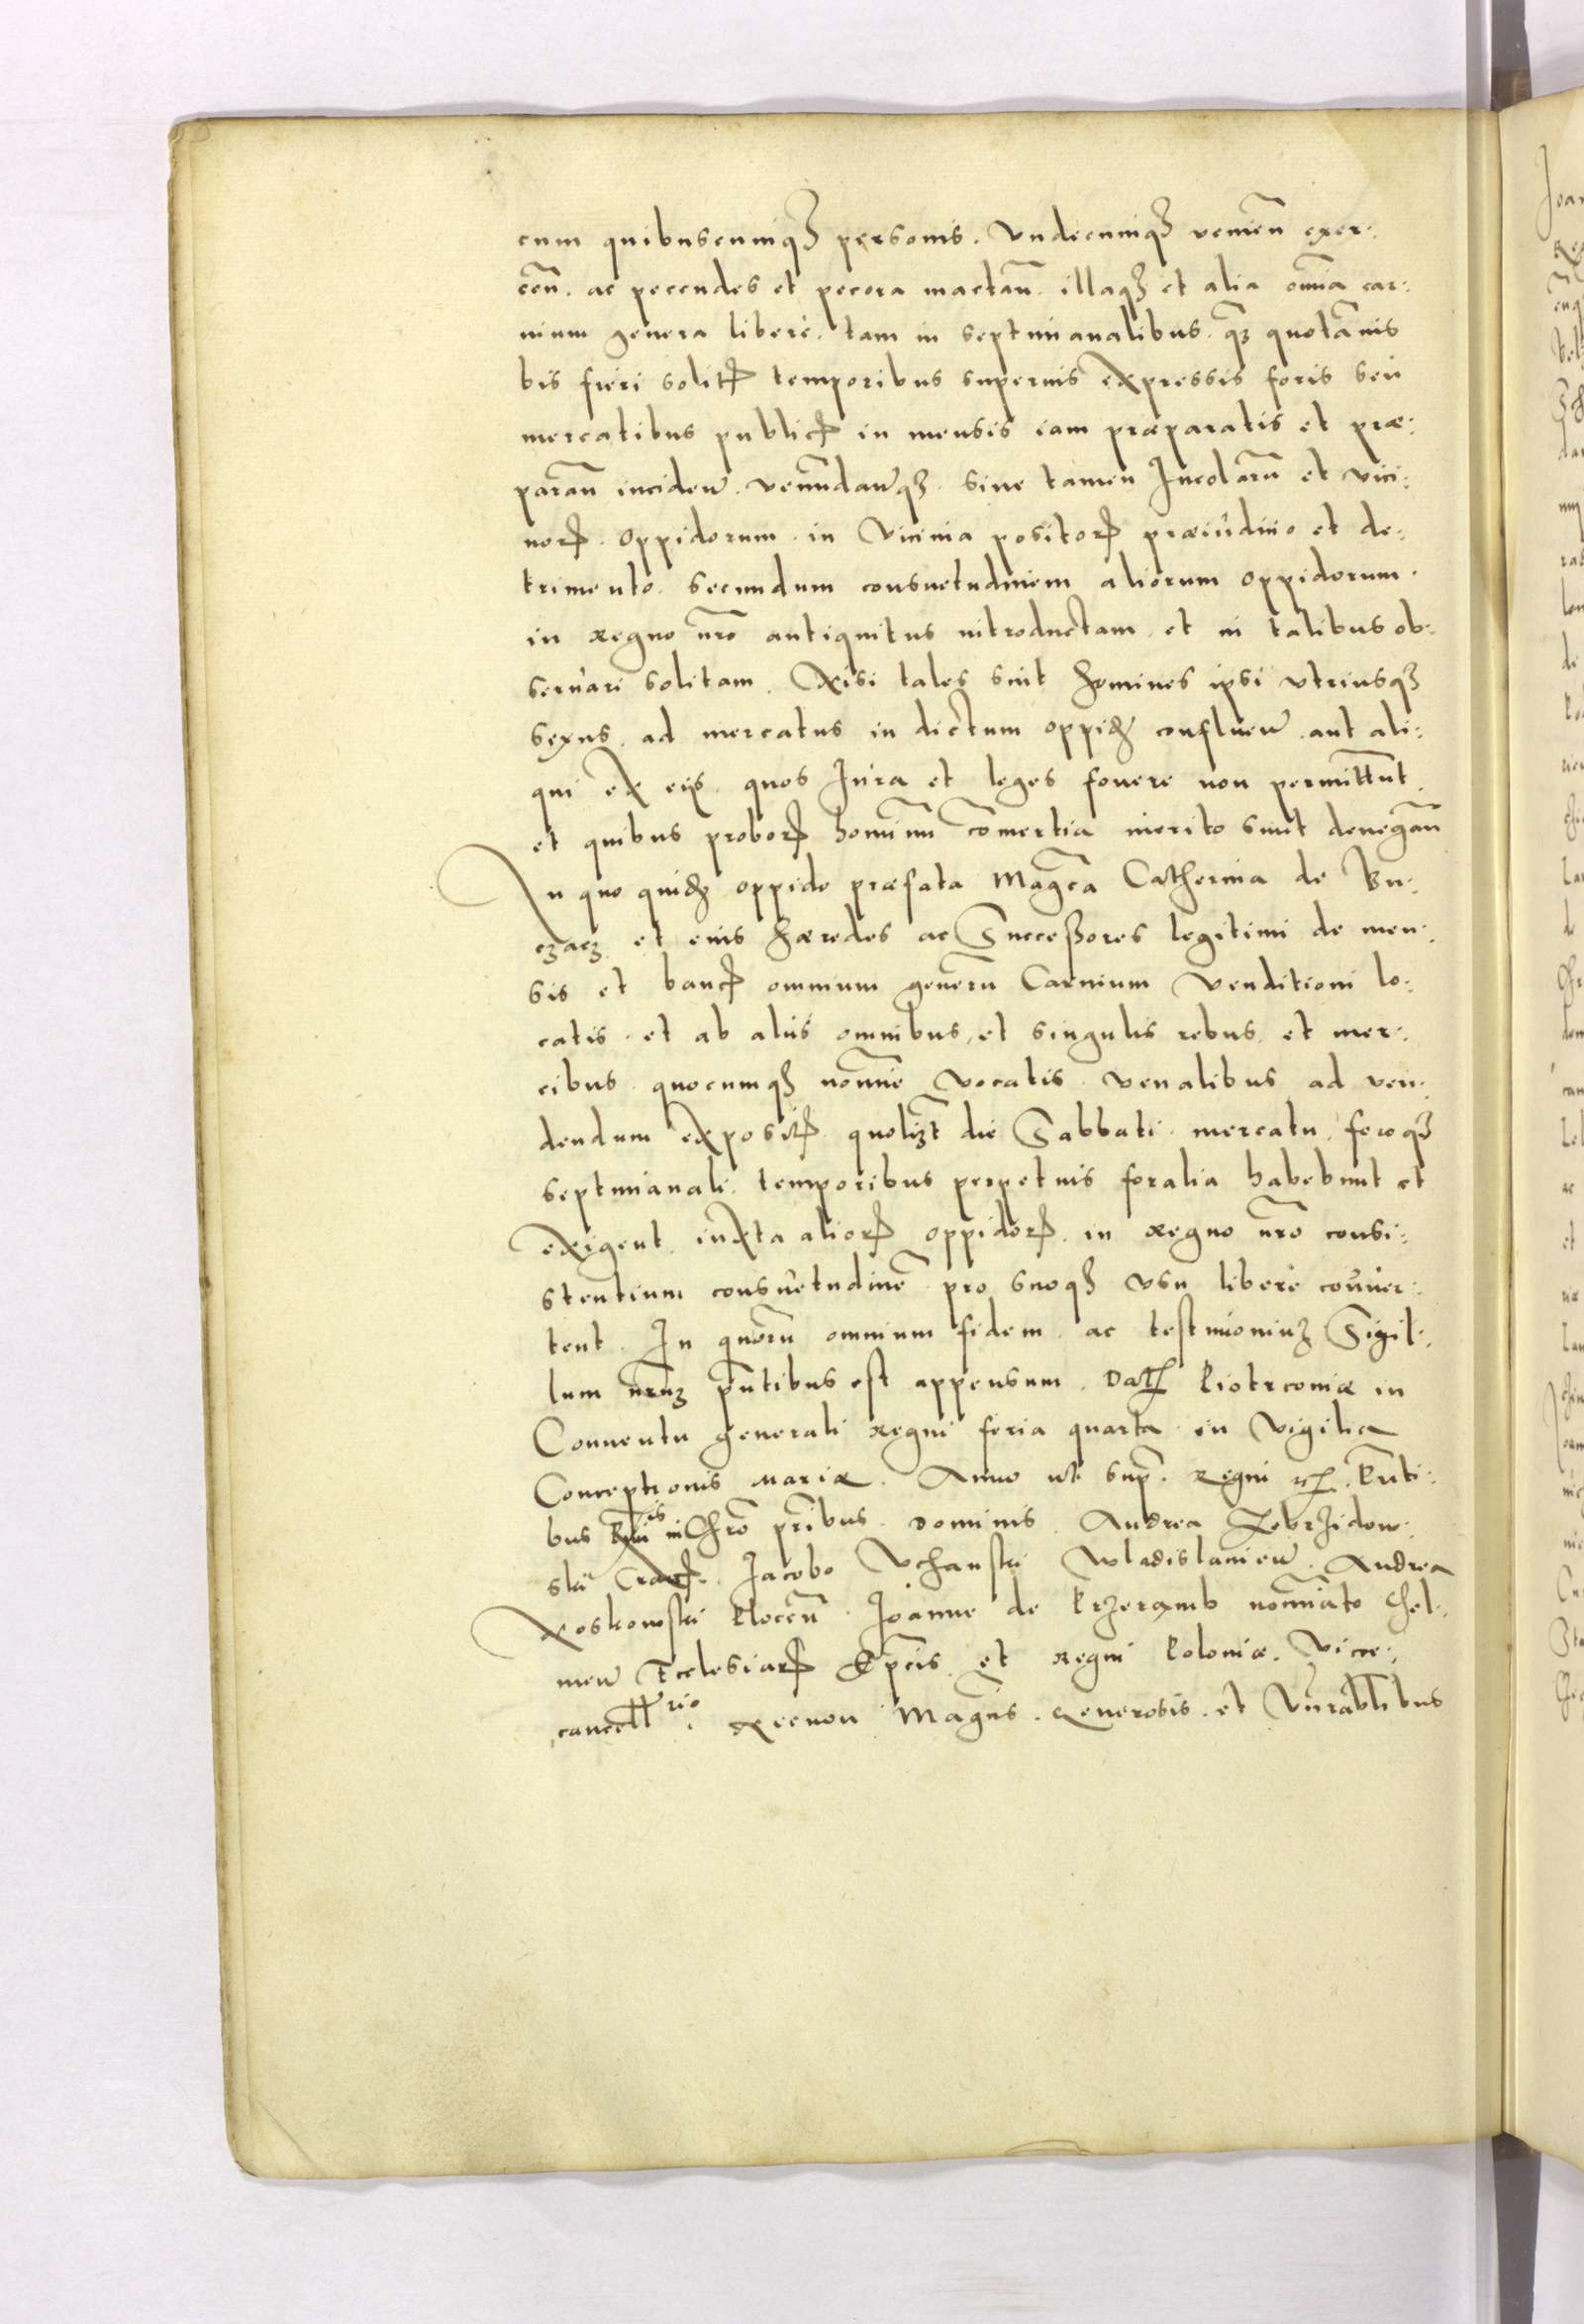 cum quibuscumqȝ personis. Vndecumqȝ venieñ exer:
ceñ. ac pecudes et pecora mactañ. illaqȝ et alia om̃ia car:
nium genera liberè. tam in septimanalibus. q̃ȝ quotãnis
bis fieri solitꝭ temporibus supernis expressis foris seù
mercatibus publicꝭ in mensis iam præparatis et præ:
parañ incideñ. venundañqȝ. sine tamen Incolarũ et vici:
norꝝ. oppidorum. in vicinia positorꝝ præiùdicio et de:
trimento. secundum consuetudinem aliorum oppidorum.
in Regno nr̃o antiquitus introductam. et in talibus ob:
seruari solitam. Nisi tales sint homines ipsi vtriusqȝ
sexus. ad mercatus in dictum oppidꝫ confluen̄. aut ali:
qui ex eis. quos Iura et leges fouere non permittũt.
et quibus proborꝝ hominũ com̃ertia merito sint denegañ
In quo quidꝫ oppido præfata Mag̃ca Catherina de Bu:
czacz et eius hæredes ac Succeßores legitimi de men:
sis et bancꝭ omnium generũ Carnium venditioni lo:
catis. et ab aliis omnibus, et singulis rebus. et mer:
cibus. quocumqȝ nom̃ine vocatis. venalibus ad ven:
dendum expositꝭ. quolizt̃ die Sabbati. mercatu. foroqȝ
septimanali. temporibus perpetuis foralia habebunt et
exigent. iuxta aliorꝝ oppidorꝝ. in Regno nr̃o consi:
stentium consùetudinẽ. pro suoqȝ vsu liberè conùer:
tent. In quorũ omnium fidem. ac testimoniuȝ Sigil:
lum nr̃uȝ pñtibus est appensum. Datꝭ Piotrcouiæ in
Conuentu generali Regni feria quarta in vigilia
Conceptionis Mariæ. Anno ut sup̃. Regni ꝛꝭ. Pñti:
bus Rñdis in Chr̃o pr̃ibus. Dominis. Andrea Zebrzidow:
ski Cracꝭ. Jacobo Vchanski Wladislauien̄. Andrea
Noskowski Ploceñ. Joanne de Przerąmb nom̃iato Chel:
men̄ Ecclesiarꝝ Ep̃cis. et Regni Poloniæ. Vicce:
cancellrio. Necnon Mag̃cis. Generosis. et Vñrabilibus